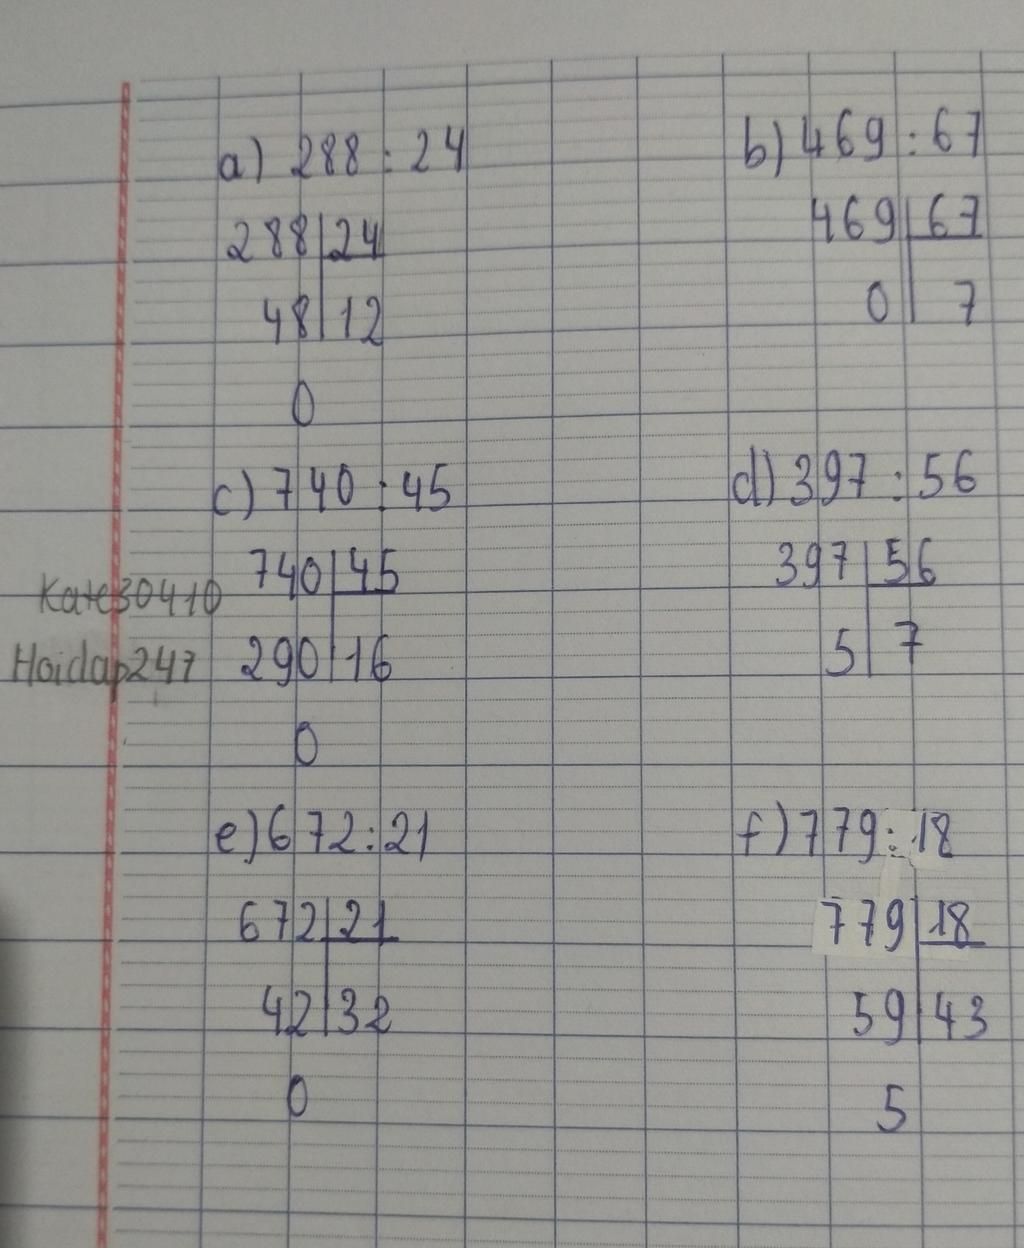 a) 288 : 24
288 | 24
48 | 12
0
b) 469 : 67
469 | 67
0 | 7
c) 740 : 45
740 | 45
290 | 16
0
d) 397 : 56
397 | 56
5 | 7
Kate30410
Hoidap247
e) 672 : 21
672 | 21
42 | 32
0
f) 779 : 18
779 | 18
59 | 43
5